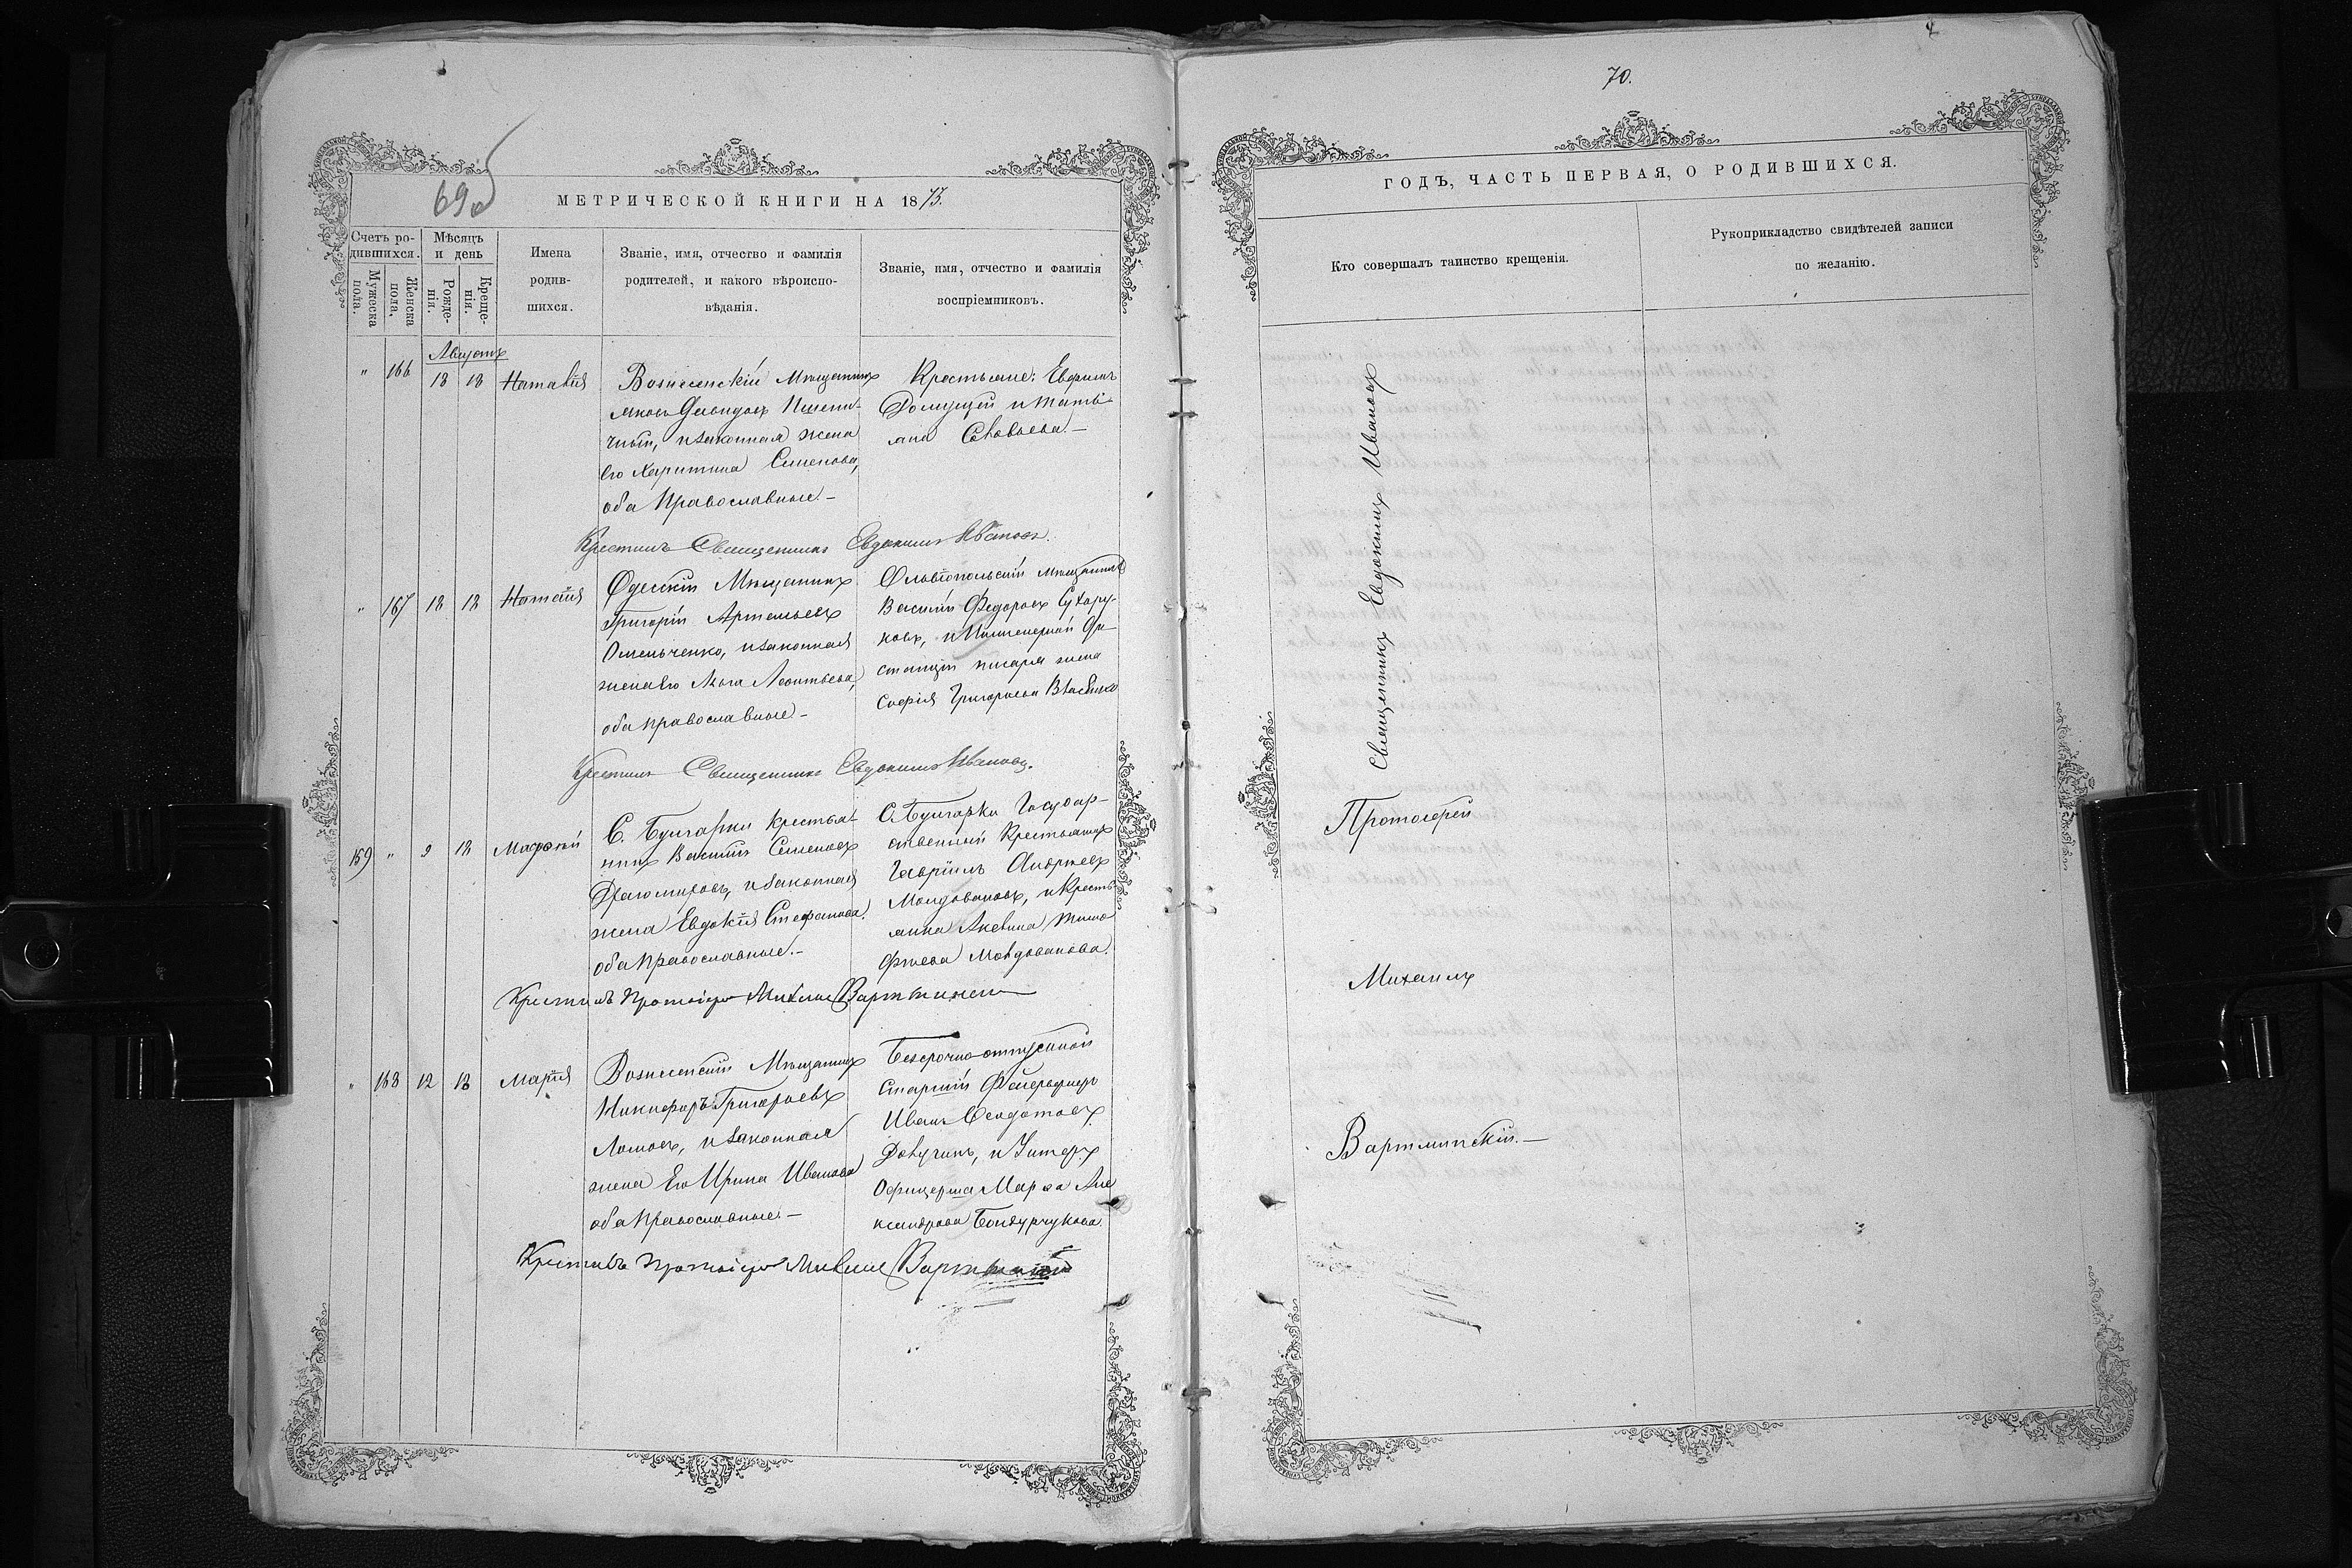 69 об
МЕТРИЧЕСКОЙ КНИГИ НА 1873.
Счетъ родившихся.
Мужеска пола.
Женска пола.
Мѣсяцъ и день
Рожденія.
Крещенія.
Имена родившихся.
Званіе, имя, отчество и фамилія родителей, и какого вѣроисповѣданія.
Званіе, имя, отчество и фамилія воспріемниковъ.
Августъ
" 166 18 18 Наталія
Вознесенскій Мѣщанинъ
Яковъ Давидовъ Пшени-
чный, и законная жена
Его Харитина Семенова,
оба Православные.-
Крестьяне: Ефримъ
и Тать-
яна Соловьева.-
Крестилъ Священникъ Евдокимъ Ивановъ.
" 167 18 18 Наталія
Одесскій Мѣщанинъ
Григорій Артемьевъ
Омельченко, и законная
жена Его Леонтьева,
оба православные.-
Ольвіопольскій мѣщанинъ
Василій Федоровъ Сухару-
ковъ, и Инженерной Ди-
станціи писаря жена
Софія Григорьева
Крестилъ Священникъ Евдокимъ Ивановъ.
159 " 9 18 Матфей
С. Булгарки крестья-
нинъ Василій Семеновъ
Драгомировъ, и законная
жена Евдокія Стефанова.
оба православные.-
С. Булгарки Государ-
ственный Крестьянинъ
Гавріилъ Андреевъ
Молдовановъ, и Кресть-
янка Акелина Тимо-
феева Молдованова.
Крестилъ Протоіерей Михаилъ Вартминскій
" 168 12 18 Марія
Вознесенскій Мѣщанинъ
Никифоръ Григорьевъ
Ломовъ, и законная
жена Его Ирина Иванова
оба Православные.-
Безсрочно-отпускной
Старшій Фейерверкеръ
Иванъ Феодотовъ
и Унтеръ
Офицерша Марѳа Але-
ксандрова Бондурчукова.
Крестилъ Протоіерей Михаилъ Вартминскій
70.
ГОДЪ, ЧАСТЬ ПЕРВАЯ, О РОДИВШИХСЯ.
Кто совершалъ таинство крещенія.
Рукоприкладство свидѣтелей записи
по желанію.
Священникъ Евдокимъ Ивановъ
Протоіерей
Михаилъ
Вартминскій.-